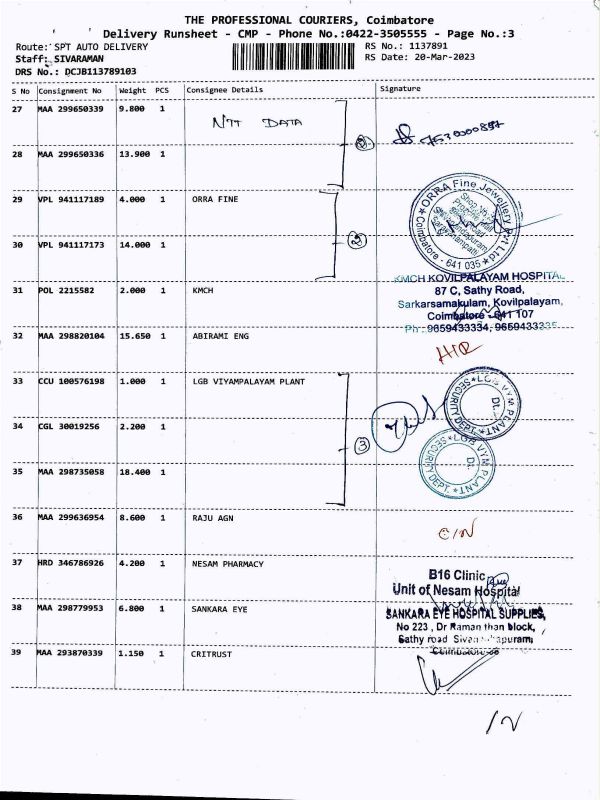 THE PROFESSIONAL COURIERS, Coimbatore
Delivery Runsheet - CMP - Phone No.:0422-3505555 - Page No.:3
Route: SPT AUTO DELIVERY RS No.: 1137891
Staff: SIVARAMAN RS Date: 20-Mar-2023
DRS No.: DCJB113789103
S No Consignment No Weight PCS Consignee Details Signature
27 MAA 299650339 9.800 1 NTT DATA
28 MAA 299650336 13.900 1
29 VPL 941117189 4.000 1 ORRA FINE
ORRA Fine Jewellery Pvt Ltd
Coimbatore - 641 035
30 VPL 941117173 14.000 1 2
31 POL 2215582 2.000 1 KMCH
KMCH KOVILPALAYAM HOSPITAL
87 C, Sathy Road,
Sarkarsamakulam, Kovilpalayam,
Coimbatore - 641 107
Ph : 9659433334, 9659433335
32 MAA 298820104 15.650 1 ABIRAMI ENG
33 CCU 100576198 1.000 1 LGB VIYAMPALAYAM PLANT
LGB VIYM PLANT
SECURITY DEPT.
Dt.
34 CGL 30019256 2.200 1 3
LGB VIYM PLANT
SECURITY DEPT.
Dt.
35 MAA 298735058 18.400 1
36 MAA 299636954 8.600 1 RAJU AGN C/N
37 HRD 346786926 4.200 1 NESAM PHARMACY
B16 Clinic
Unit of Nesam Hospital
38 MAA 298779953 6.800 1 SANKARA EYE
SANKARA EYE HOSPITAL SUPPLIES,
No 223 , Dr Raman than block,
Sathy road
39 MAA 293870339 1.150 1 CRITRUST